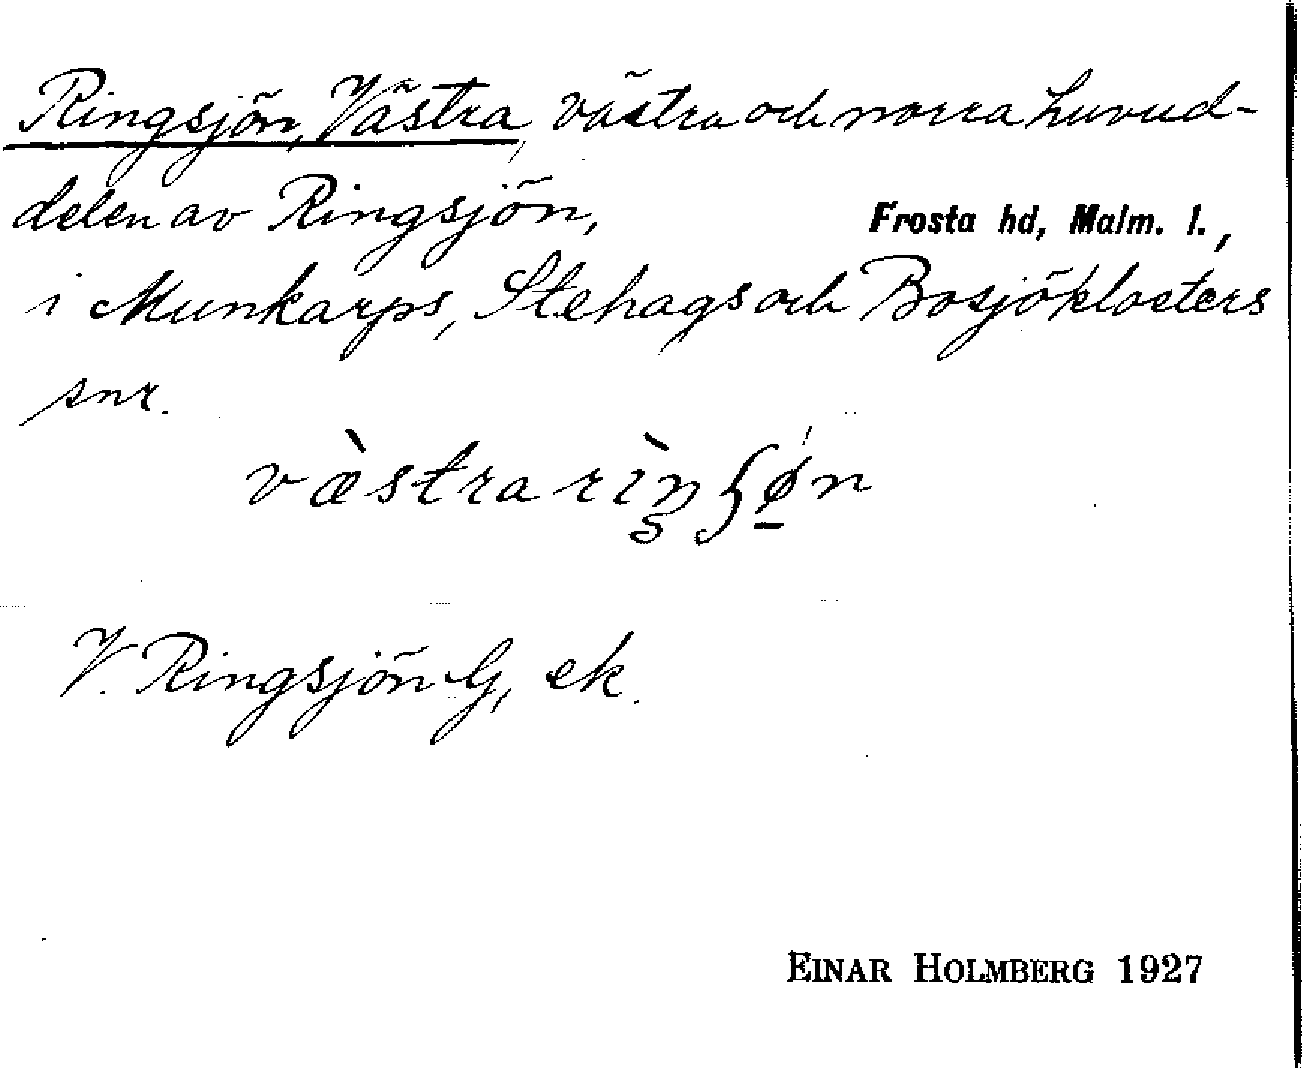 Ringsjön, Västra, västra och norra huvud-
delen av Ringsjön, Frosta hd, Malm. l.,
i Munkarps, Stehags och Bosjöklosters
snr.
væ̀stra rìŋʃǿ̱n
V. Ringsjön G, ek.
EINAR HOLMBERG 1927